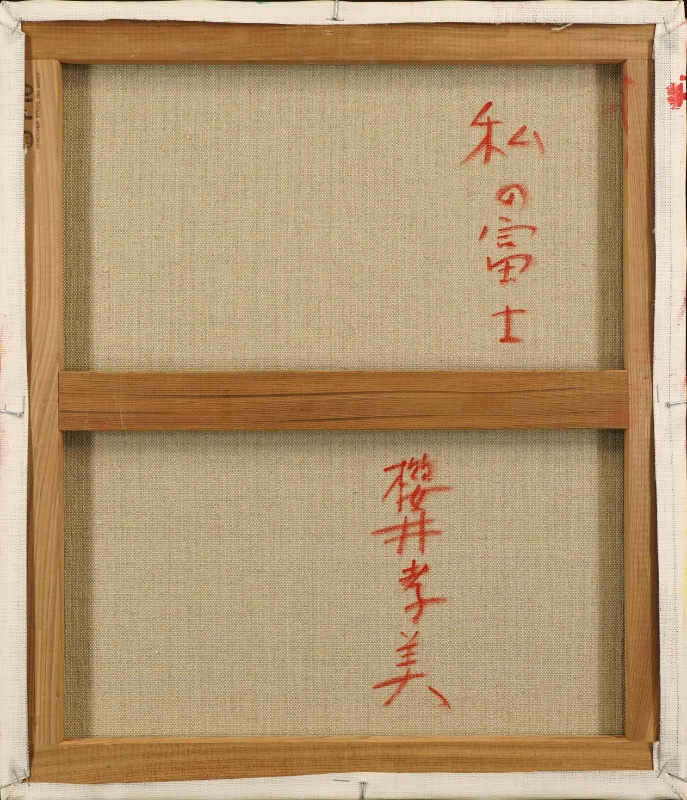 私の富士
櫻井孝美